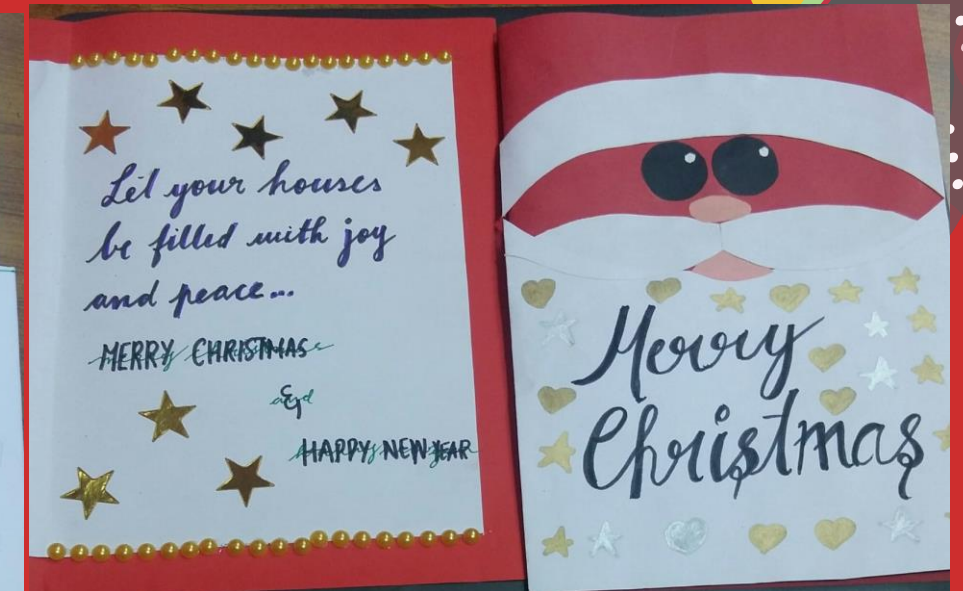 Let your houses
be filled with joy
and peace...
MERRY CHRISTMAS
&
HAPPY NEW YEAR
Merry
Christmas